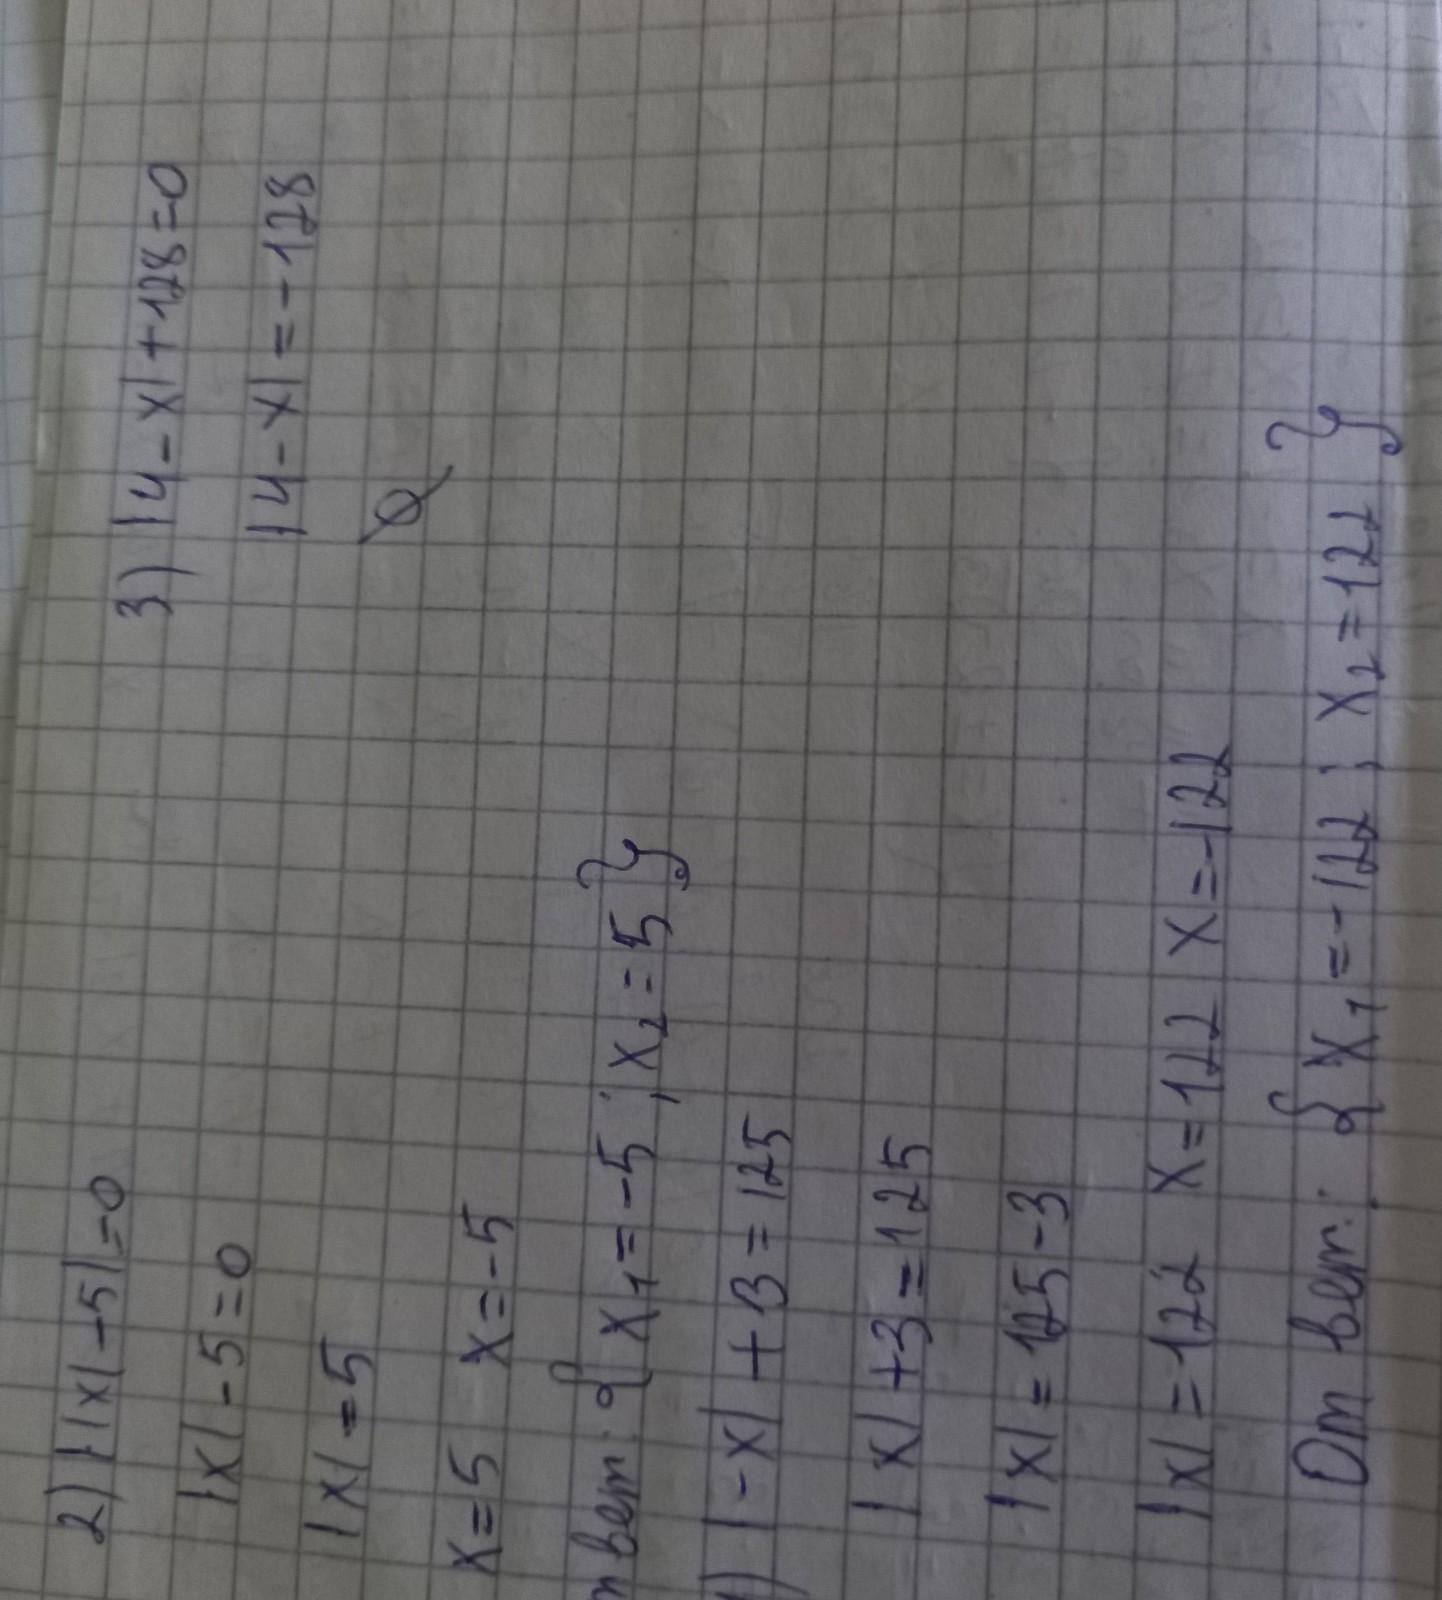 2) ||x|-5|=0
|x|-5=0
|x|=5
x=5 x=-5
твет: {x₁=-5; x₂=5}
1) |-x|+3=125
|x|+3=125
|x|=125-3
|x|=122 x=122 x=-122
Ответ: {x₁=-122; x₂=122}
3) |4-x|+128=0
|4-x|=-128
∅